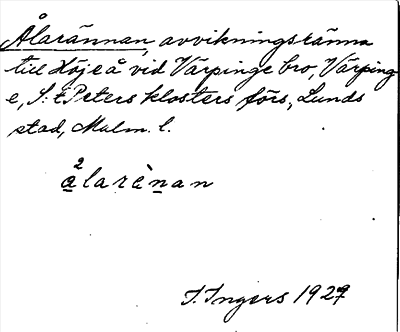 Ålarännan, avvikningsränna
till Höjeå vid Värpinge bro, Värping
e, S:t Peters klosters förs., Lunds
stad, Malm. l.
2
ålarènan
I. Ingers 1927